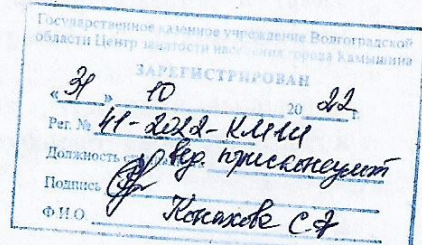 Государственное казенное учреждение Волгоградской
области Центр занятости населения города Камышина
ЗАРЕГИСТРИРОВАН
« 31 » 10 20 22 г.
Рег. № 41-2022-КМШ
Должность вед. юрисконсульт
Подпись
Ф.И.О. Конахова С.